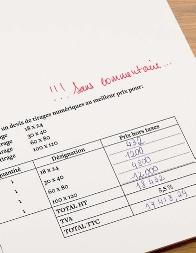 !!! Sans commentaire...
un devis de tirages numériques au meilleur prix pour:
tirage 18 x 24
tirage 30 x 40
tirage 60 x 80
tirage 100 x 120
Quantité Désignation Prix hors taxes
1 18 x 24 432
1 30 x 40 1200
1 60 x 80 4800
1 100 x 120
TOTAL HT
TVA 5,5%
TOTAL TTC